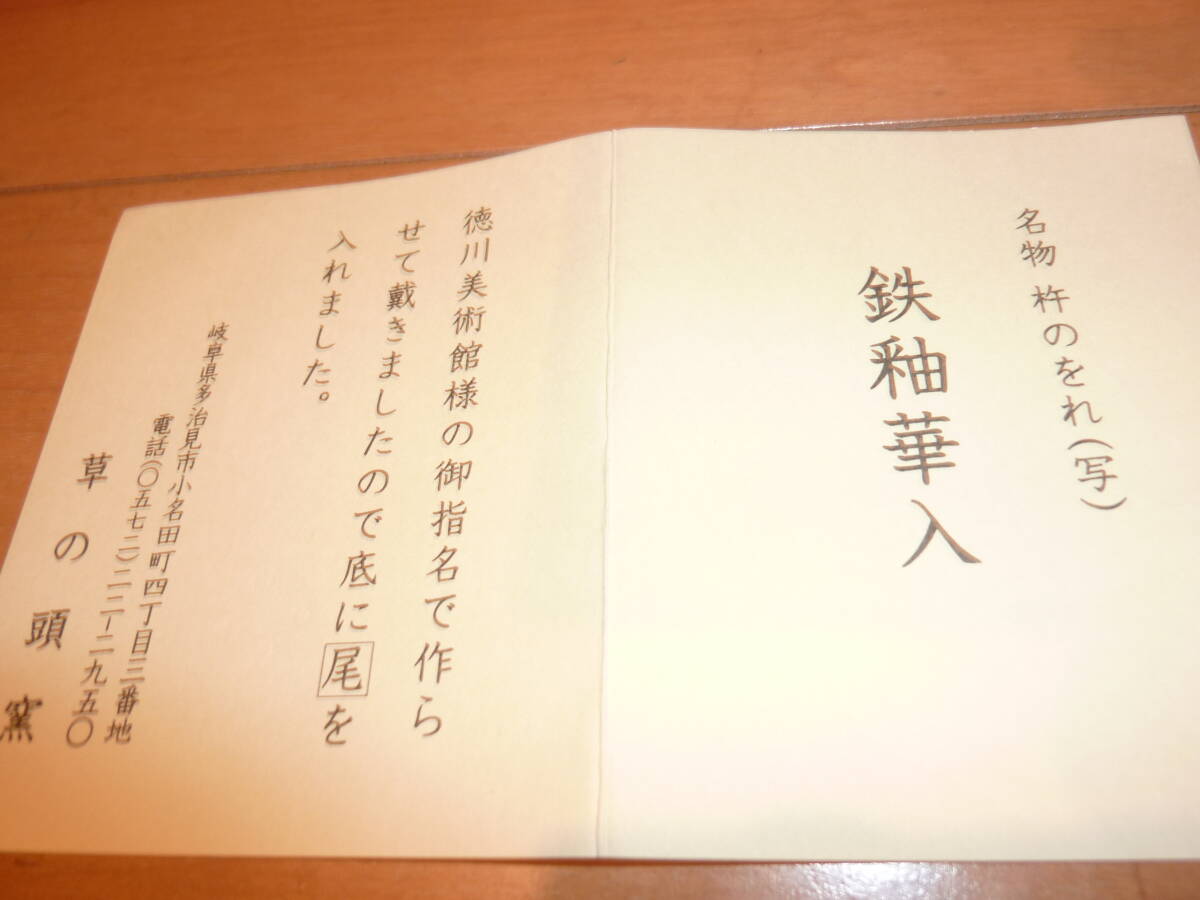 名物 杵のをれ(写)
鉄釉華入
徳川美術館様の御指名で作ら
せて戴きましたので底に尾を
入れました。
岐阜県多治見市小名田町四丁目三番地
電話(〇五七二)二二ー二九五〇
草の頭窯